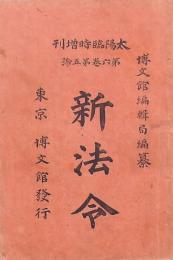 太陽臨時增刊
第六卷第五號
博文館編輯局編纂
新法令
東京 博文館發行